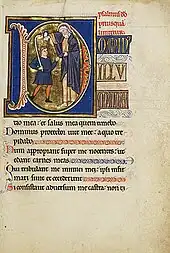 psalmus dd
priusquam
tio mea: et salus mea quem timebo
Dominus protector uite mee: a quo tre
pidabo
Dum appropiant super me nocentes: ut
edant carnes meas
Qui tribulant me inimici mei: ipsi infir
mati sunt et ceciderunt
Si consistant aduersum me castra: non ti